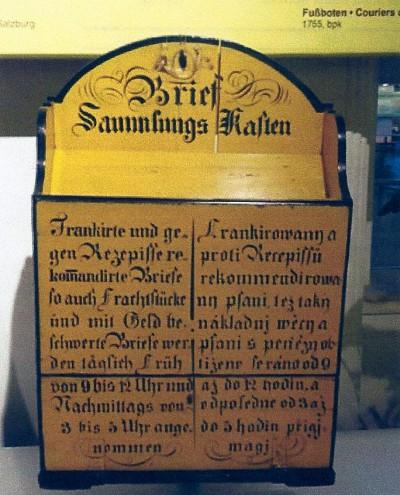 Salzburg
Fußboten • Couriers
1755, bpk
Brief
Sammlungs Kasten
Frankirte und ge-
gen Rezepisse re-
kom̄andirte Briefe
so auch Frachtstücke
und mit Geld be-
schwerte Briefe wer-
den täglich Früh
von 9 bis 12 Uhr und
Nachmittags von
3 bis 5 Uhr ange-
nommen
Frankirowany a
proti Recepissů
rekommendirowa
ny psani, tez takń
nákladnj wěcy a
psani s penězy ob
tižene se ráno od 9
aj do 12 hodin, a
odpoledne od 3 aj
do 5 hodin přigj-
magj